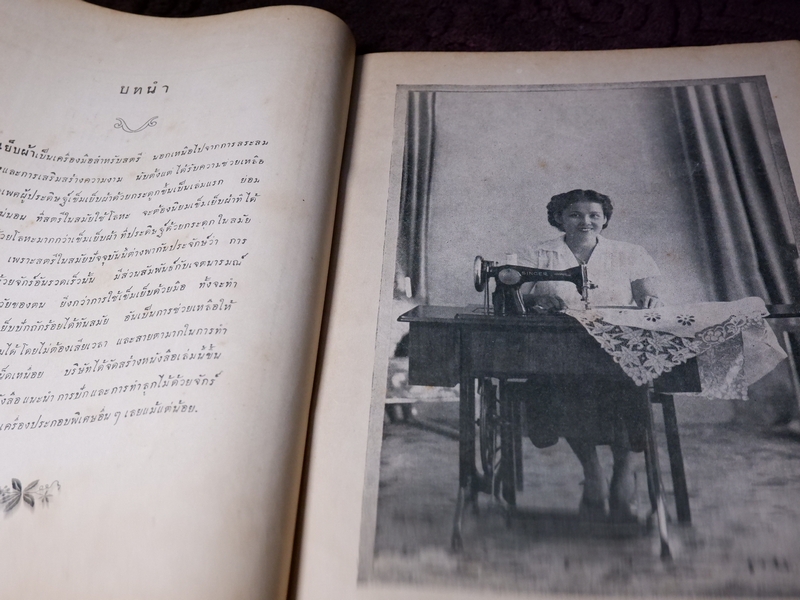 บทนำ
เย็บผ้าเป็นเครื่องมือสำหรับสตรี นอกเหนือไปจากการสระสม
และการเสริมสร้างความงาม นับตั้งแต่ได้รับความช่วยเหลือ
เพศผู้ประดิษฐ์เข็มเย็บผ้าด้วยกระดูกขึ้นเป็นเล่มแรก ย่อม
แน่นอน ที่สตรีในสมัยใช้โลหะ จะต้องนิยมเข็มเย็บผ้าที่ได้
ด้วยโลหะมากกว่าเข็มเย็บผ้า ที่ประดิษฐ์ด้วยกระดูก ในสมัย
เพราะสตรีในสมัยปัจจุบันนี้ต่างพากันประจักษ์ว่า การ
ด้วยจักร์อันรวดเร็วนั้น มีส่วนสัมพันธ์กับเจตนารมณ์
วัยของตน ยิ่งกว่าการใช้เข็มเย็บด้วยมือ ทั้งจะทำ
เย็บปักถักร้อยได้ทันสมัย อันเป็นการช่วยเหลือให้
โดยไม่ต้องเสียเวลา และสายตามากในการทำ
เหน็ดเหนื่อย บริษัทได้จัดสร้างหนังสือเล่มนี้ขึ้น
แนะนำ การปัก และการทำลูกไม้ด้วยจักร์
เครื่องประกอบพิเศษอื่น ๆ เลยแม้แต่น้อย.
SINGER